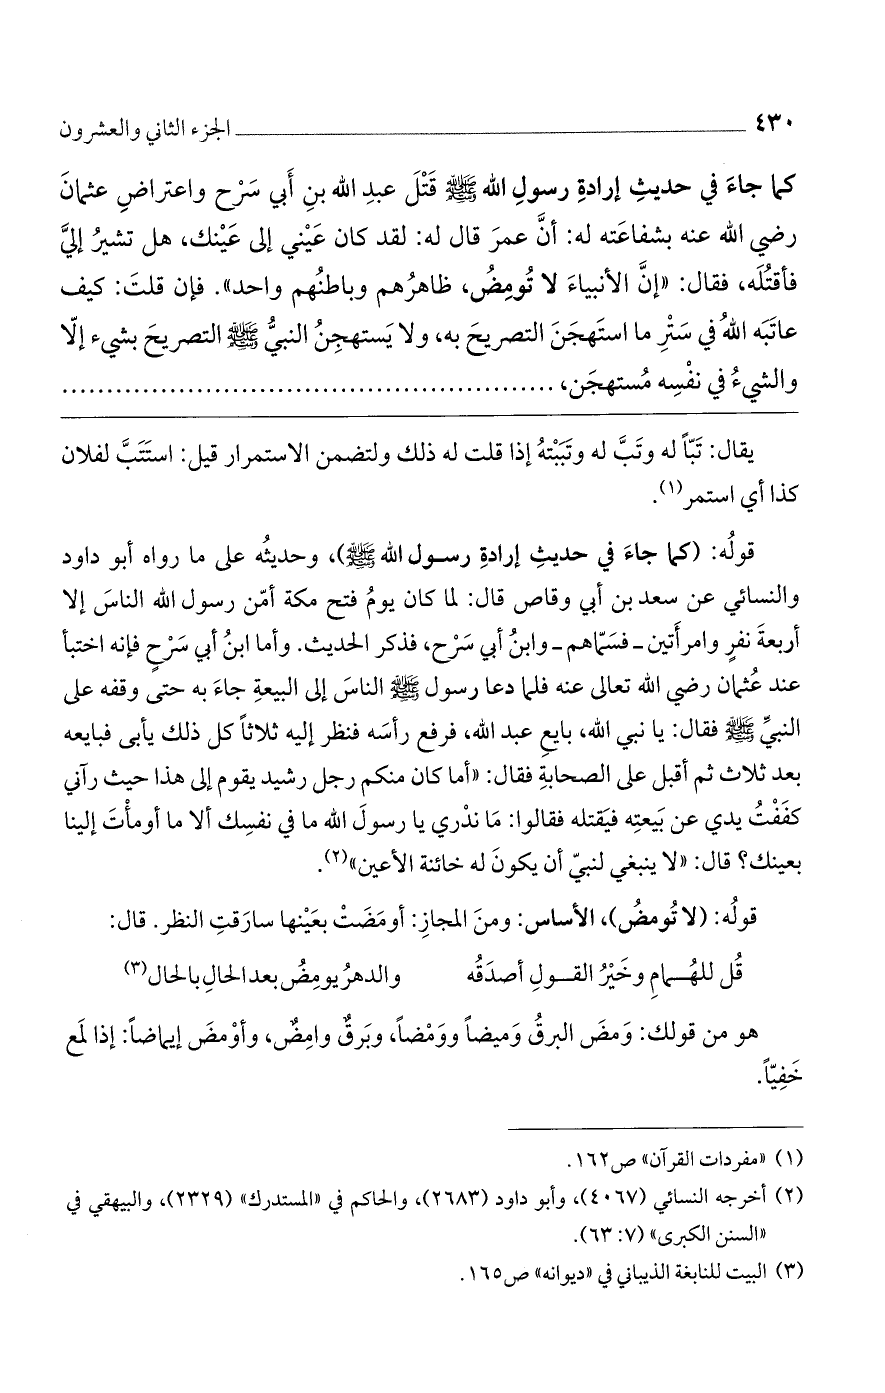 ٤٣٠ ــــــــــــــــــــــــــــــــــــــــــــــــــــــــــــــــــــــــــــــــــ الجزء الثاني والعشرون
كما جاءَ في حديثِ إرادةِ رسولِ الله ﷺ قَتْلَ عبدِ الله بنِ أَبي سَرْح واعتراضِ عثمانَ
رضي الله عنه بشفاعَته له: أنَّ عمرَ قال له: لقد كان عَيْني إلى عَيْنك، هل تشيرُ إليَّ
فأقتُلَه، فقال: «إنَّ الأنبياءَ لا تُومِضُ، ظاهرُهم وباطنُهم واحد». فإن قلتَ: كيف
عاتَبَه اللهُ في سَتْرِ ما استَهجَنَ التصريحَ به، ولا يَستهجِنُ النبيُّ ﷺ التصريحَ بشيء إلّا
والشيءُ في نفْسِه مُستهجَن، ......................................................
يقال: تَبّاً له وتَبَّ له وتَبَبْتهُ إذا قلت له ذلك ولتضمن الاستمرار قيل: استَتَبَّ لفلان
كذا أي استمر(١).
قولُه: (كما جاءَ في حديثِ إرادةِ رسول الله ﷺ)، وحديثُه على ما رواه أبو داود
والنسائي عن سعد بن أبي وقاص قال: لما كان يومُ فتح مكة أمّن رسول الله الناسَ إلا
أربعةَ نفرٍ وامرأَتين ـ فسَمّاهم ـ وابنُ أبي سَرْح، فذكر الحديث. وأما ابنُ أبي سَرْحٍ فإنه اختبأ
عند عُثمان رضي الله تعالى عنه فلما دعا رسول ﷺ الناسَ إلى البيعةِ جاءَ به حتى وقفه على
النبيِّ ﷺ فقال: يا نبي الله، بايعِ عبد الله، فرفع رأسَه فنظر إليه ثلاثاً كل ذلك يأبى فبايعه
بعد ثلاث ثم أقبل على الصحابةِ فقال: «أما كان منكم رجل رشيد يقوم إلى هذا حيث رآني
كفَفْتُ يدي عن بَيعتِه فيَقتله فقالوا: مَا نَدْري يا رسولَ الله ما في نفسِك ألا ما أومأْتَ إلينا
بعينك؟ قال: «لا ينبغي لنبيّ أن يكونَ له خائنة الأعين»(٢).
قولُه: (لا تُومضُ)، الأساس: ومنَ المجازِ: أومَضَتْ بعَيْنها سارَقتِ النظر. قال:
قُل للهُمامِ وخَيْرُ القولِ أصدَقُه والدهرُ يومِضُ بعد الحالِ بالحال(٣)
هو من قولك: وَمضَ البرقُ وَميضاً ووَمْضاً، وبَرقٌ وامِضٌ، وأوْمضَ إيماضاً: إذا لمَع
خَفِيّاً.
(١) «مفردات القرآن» ص١٦٢.
(٢) أخرجه النسائي (٤٠٦٧)، وأبو داود (٢٦٨٣)، والحاكم في «المستدرك» (٢٣٢٩)، والبيهقي في
«السنن الكبرى» (٧: ٦٣).
(٣) البيت للنابغة الذبياني في «ديوانه» ص١٦٥.